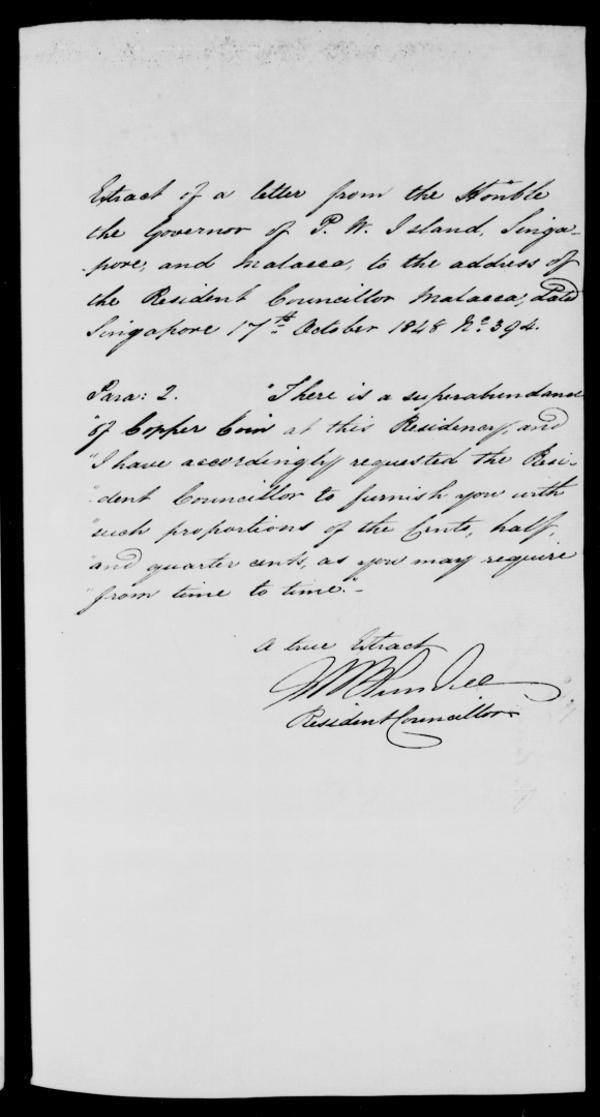 Extract of a letter from the Honble
the Governor of P. W. Island, Singa-
-pore, and Malacca, to the address of
the Resident Councillor Malacca, dated
Singapore 17th October 1848 No. 394.
Para: 2. "There is a superabundance
"of Copper Coin at this Residency, and
"I have accordingly requested the Resi-
"dent Councillor to furnish you with
"such proportions of the Cents, half,
"and quarter cents, as you may require
"from time to time."-
A true Extract
Resident Councillor